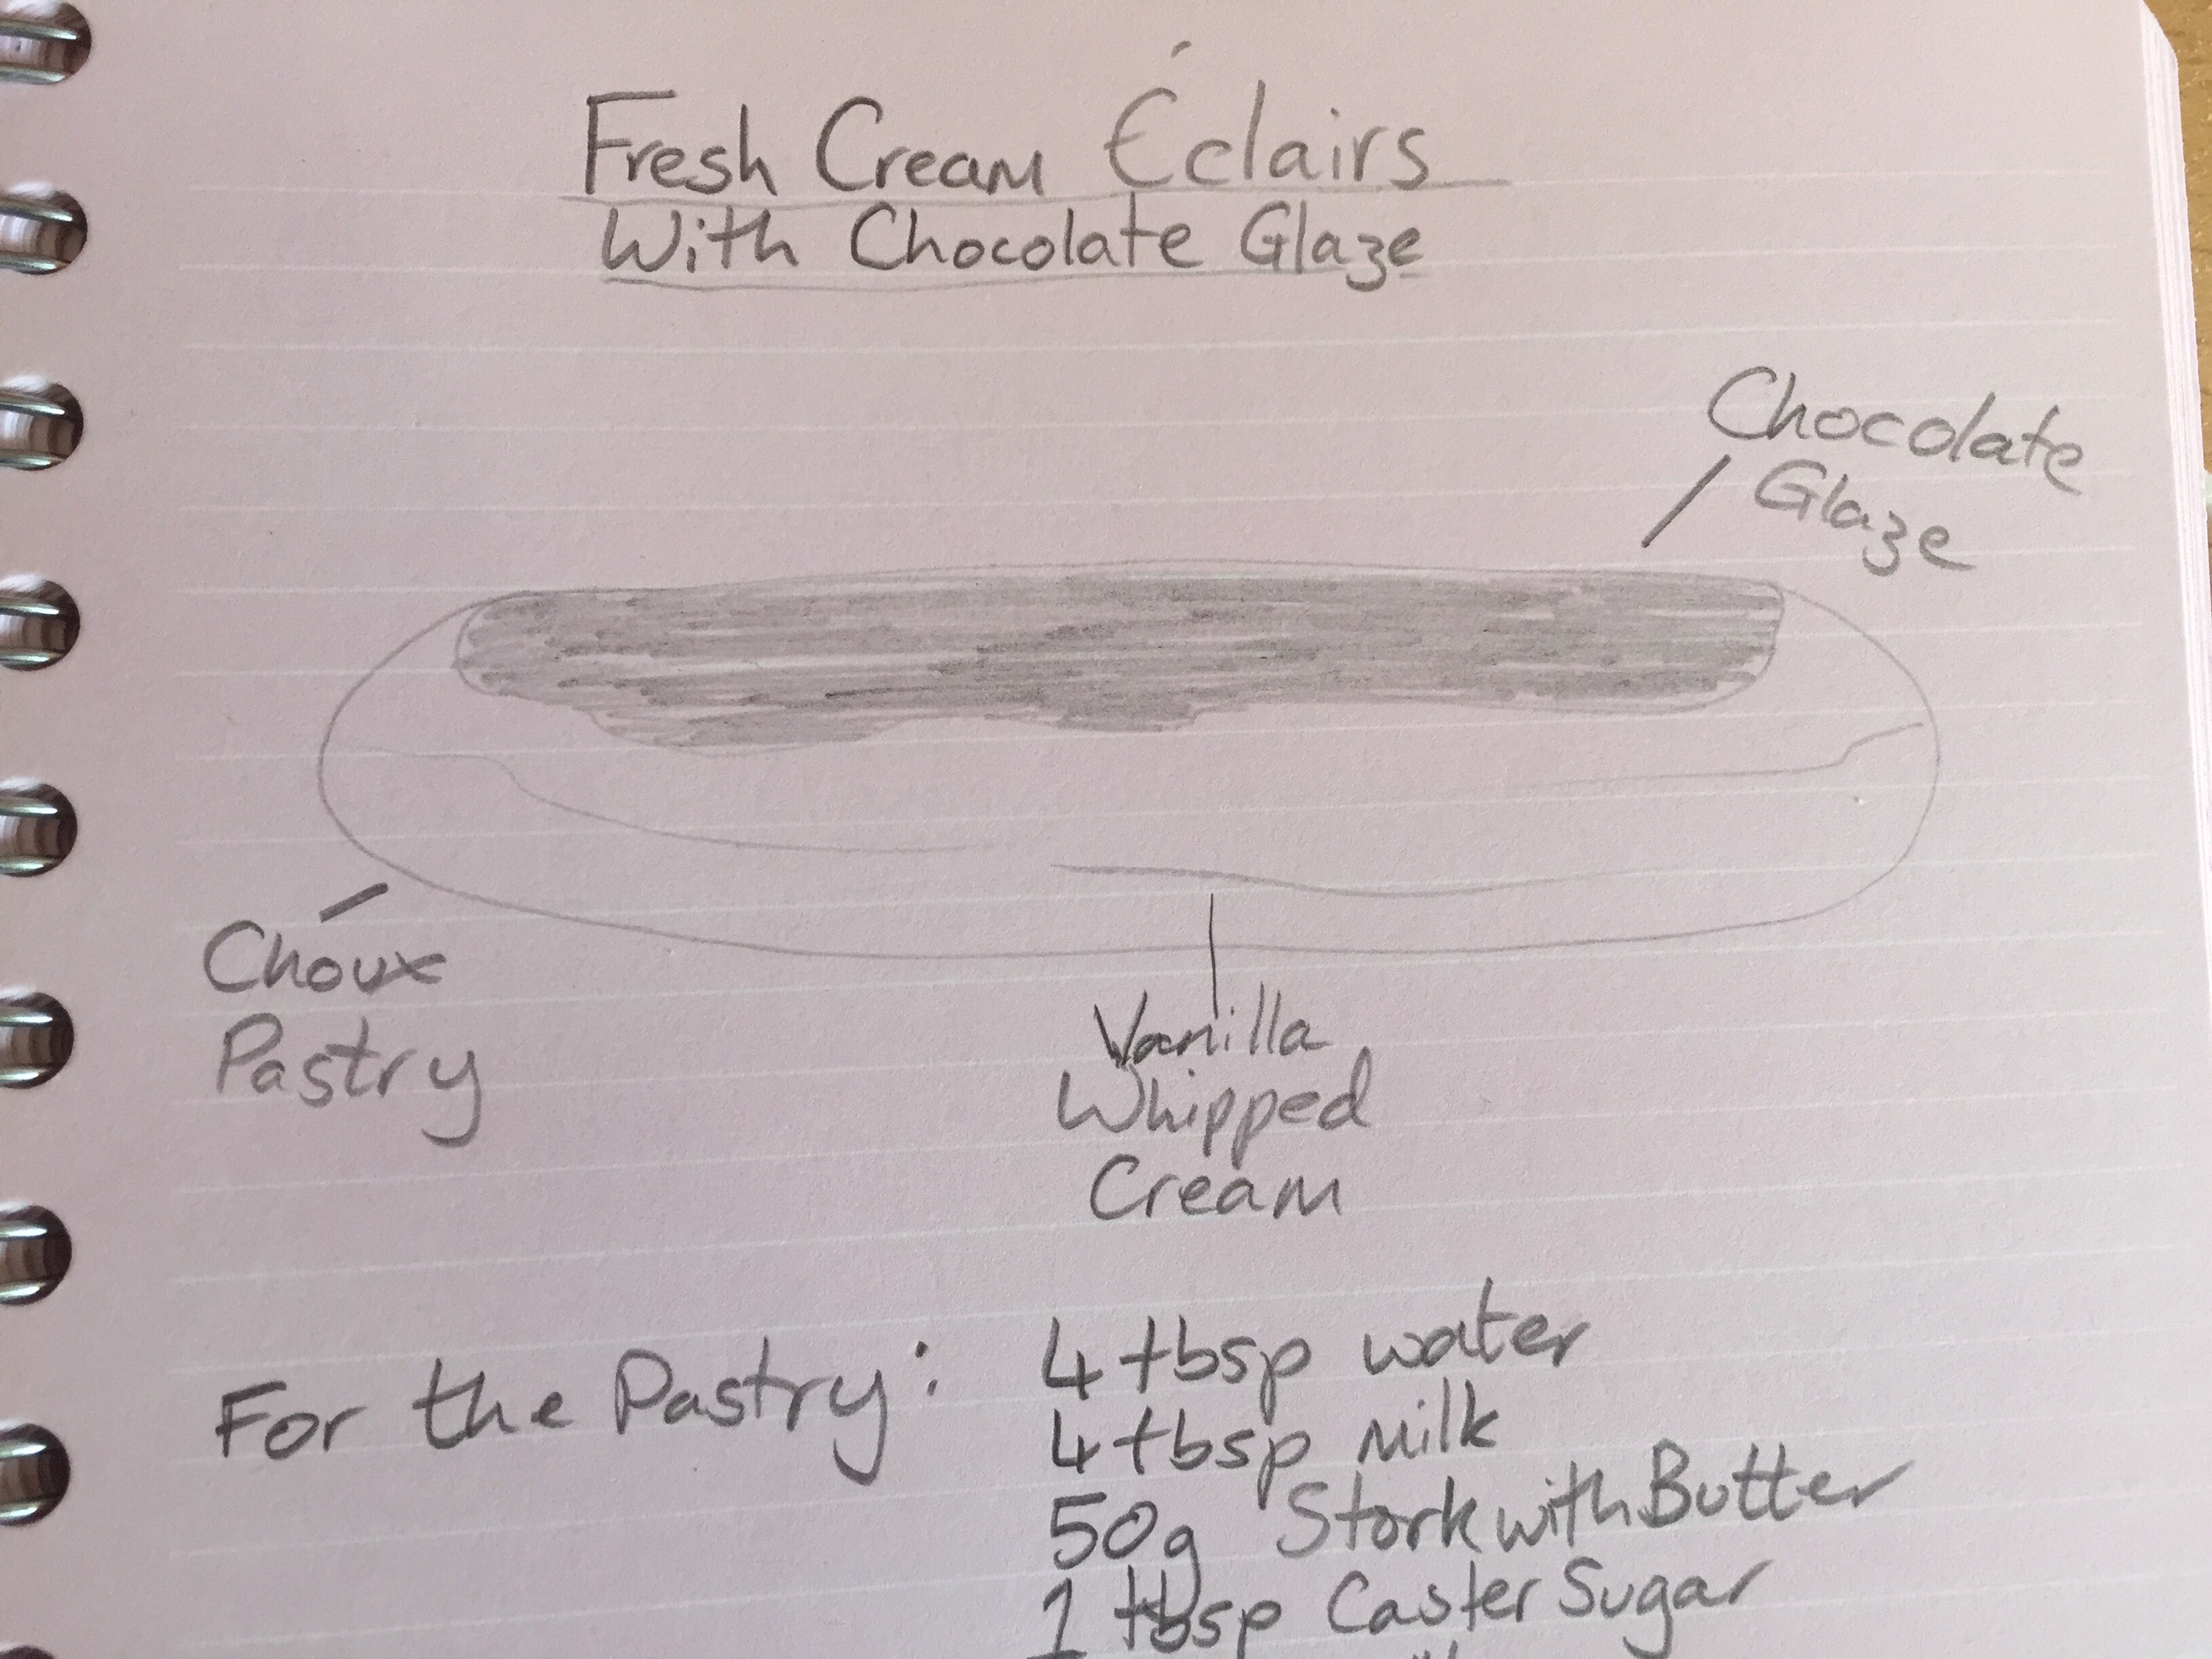 Fresh Cream Éclairs
With Chocolate Glaze
Chocolate
Glaze
Choux
Pastry
Vanilla
Whipped
Cream
For the Pastry: 4 tbsp water
4 tbsp milk
50g Stork with Butter
1 tbsp Caster Sugar